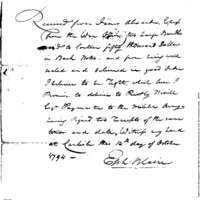 Received from James Alexander, Express
from the War Office, two large Bundles
said to contain fifty thousand Dollars
in Bank Notes, and from being well
sealed and delivered in good Order
I believe to be Right which here I
Promise to deliver to Presley Nevill
Esqr. Paymaster to the Militia
having signed two Receipts of the same
tenor and date, Witness my hand
at Carlisle this 14th day of October
1794 —
Eph Blaine